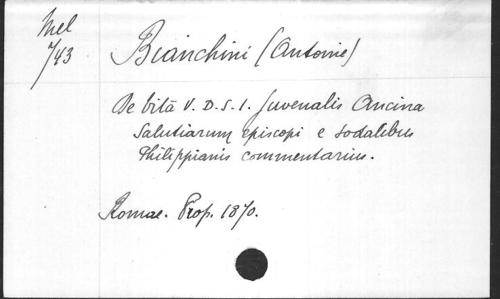 Mel
7/43
Bianchini (Antoine)
De vitâ V. D. S. I. Juvenalis Ancina
Salutiarum episcopi e sodalibus
Philippianis commentarius.
Romae. Prop. 1870.